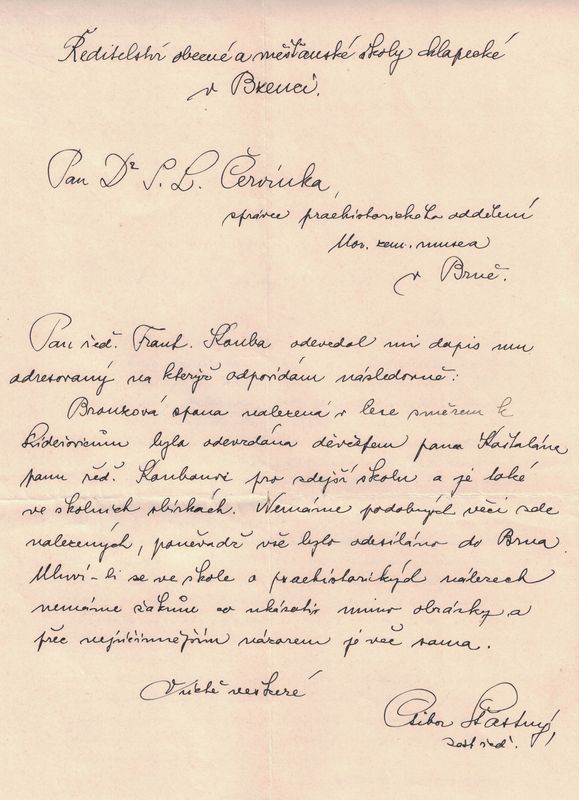 Ředitelství obecné a měšťanské školy chlapecké
v Bzenci.
Pan Dr I. L. Červinka,
správce praehistorického oddělení
Mor. zem. musea
v Brně.
Pan řed. Frant. Kouba odevzdal mi dopis mu
adresovaný na kterýž odpovídám následovně:
Bronzová spona nalezená v lese směrem k
byla odevzdána děvčetem pana
panu řed. Koubovi pro zdejší školu a je také
ve školních sbírkách. Nemáme podobných věcí zde
nalezených, poněvadž vše bylo odesíláno do Brna.
Mluví-li se ve škole o praehistorických nálezech
nemáme žákům co ukázati mimo obrázky a
přec nejúčinnějším názorem je věc sama.
V úctě veškeré
Ctibor Šťastný,
zast. řed.